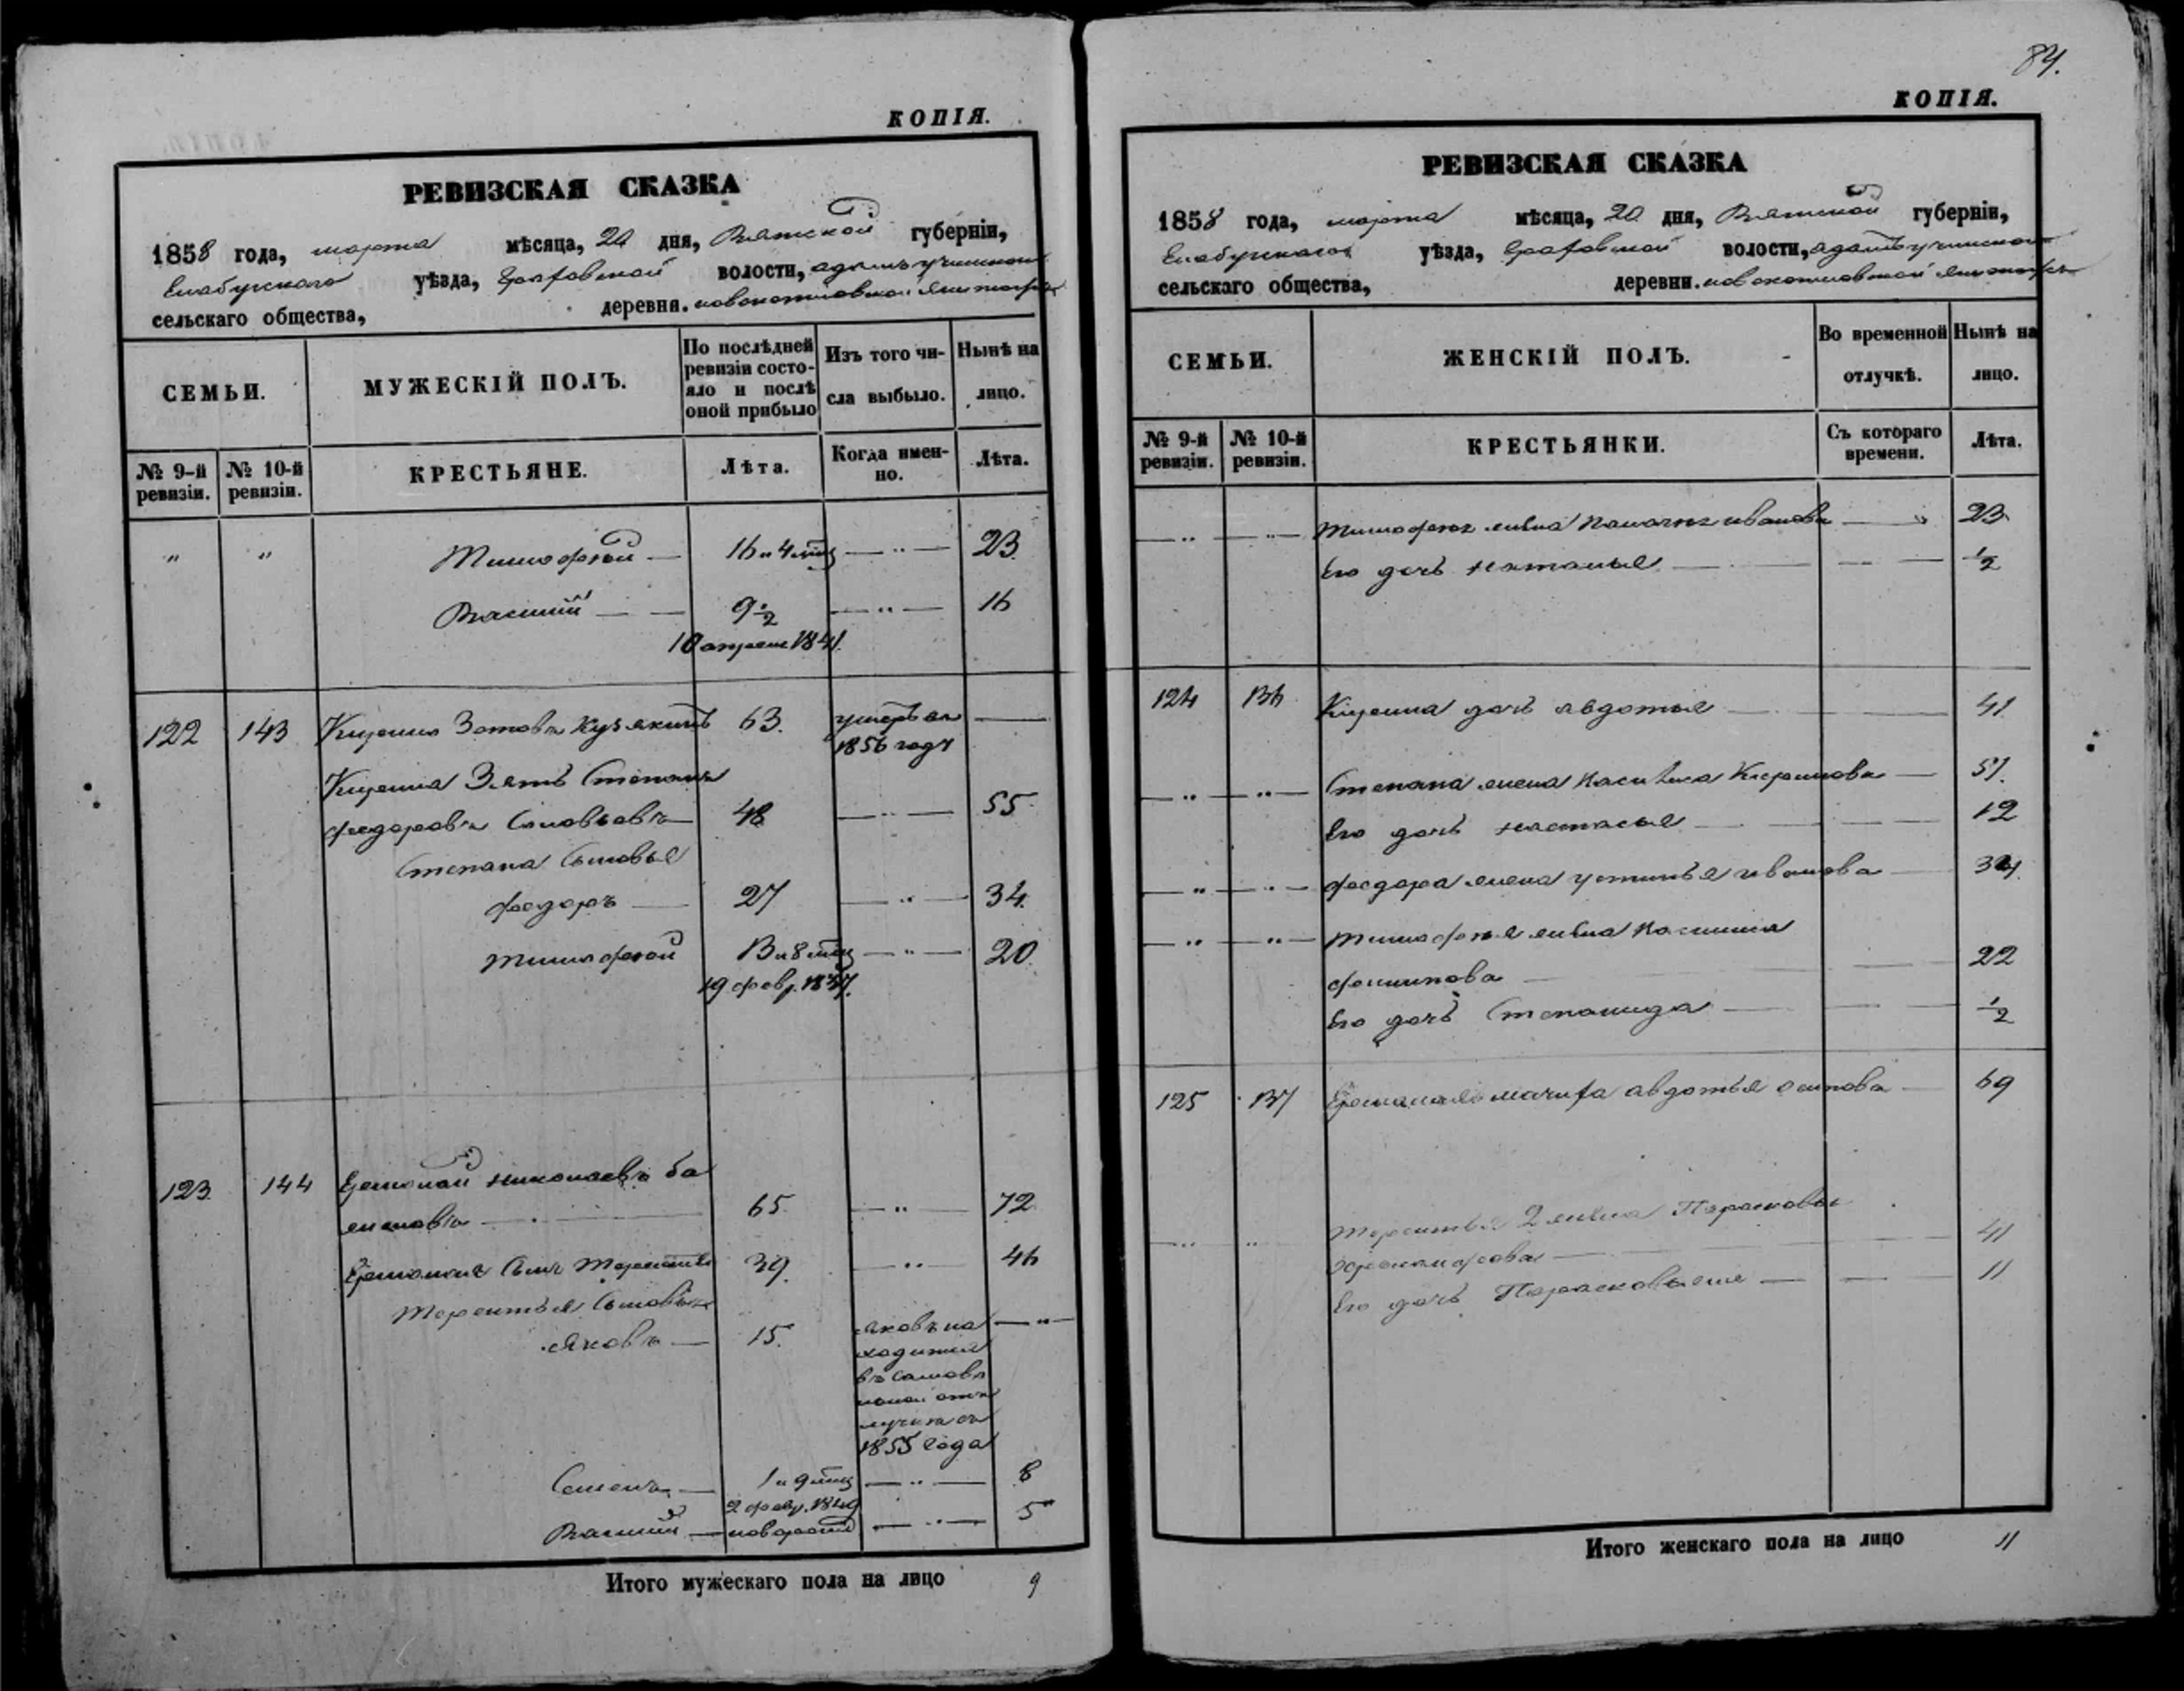 КОПІЯ.
РЕВИЗСКАЯ СКАЗКА
1858 года, марта мѣсяца, 20 дня, Вятской губерніи,
Елабужскаго уѣзда, Граховской волости,
сельскаго общества, деревни.
СЕМЬИ.
МУЖЕСКІЙ ПОЛЪ.
По послѣдней ревизіи состо-
яло и послѣ оной прибыло
Изъ того чи-
сла выбыло.
Нынѣ на
лицо.
№ 9-й ревизіи.
№ 10-й ревизіи.
КРЕСТЬЯНЕ.
Лѣта.
Когда имен-
но.
Лѣта.
" " Тимофей — 16 и 4 мѣц — " — 23.
Василій — — 9 1/2 — " — 16
10 апреля 1841.
122 143 Зотовъ 63. умеръ въ —
1856 году
Зять Степанъ
Федоровъ Соловьевъ — 48 — " — 55
Степана Сыновья
Федоръ — 27 — " — 34.
Тимофей 13 и 8 мѣц — " — 20.
19 февр. 1837.
123 144 Ермолай Николаевъ Ба
женовъ — 65. — " — 72
Ермолая Сынъ Терентій 39. — " — 46
Терентья Сыновья
Яковъ — 15. Яковъ на — " —
ходится
въ самов
ольной отъ
лучкѣ съ
1855 года
Семенъ — 1 и 9 мѣц — " — 8
2 февр. 1849
Василій — новорож — " — 5
Итого мужескаго пола на лицо 9
84.
КОПІЯ.
РЕВИЗСКАЯ СКАЗКА
1858 года, марта мѣсяца, 20 дня, Вятской губерніи,
Елабужскаго уѣзда, Граховской волости,
сельскаго общества, деревни.
СЕМЬИ.
ЖЕНСКІЙ ПОЛЪ.
Во временной
отлучкѣ.
Нынѣ на
лицо.
№ 9-й ревизіи.
№ 10-й ревизіи.
КРЕСТЬЯНКИ.
Съ котораго
времени.
Лѣта.
— " — " — Тимофея жена Иванова — " 23
Его дочь Наталья — — 1/2
124 136 дочь Авдотья — 41
— " — " — Степана жена — 51.
Его дочь Настасья — 12
— " — " — Федора жена Устинья Иванова — 34.
— " — " — Тимофея жена
Филипова — 22
Его дочь Степанида — 1/2
125 137 Ермолая мачиха Авдотья Осипова — 69
— " " Терентья 2 жена Парасковья
— 41
Его дочь Парасковья — — 11
Итого женскаго пола на лицо 11